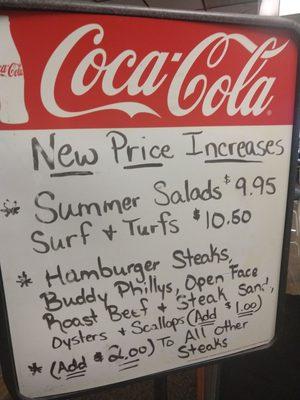 Coca-Cola
Coca-Cola
New Price Increases
* Summer Salads $9.95
Surf & Turfs $10.50
* Hamburger Steaks,
Buddy Phillys, Open Face
Roast Beef & Steak Sand,
Oysters & Scallops (Add $1.00)
* (Add $2.00) To All other
Steaks